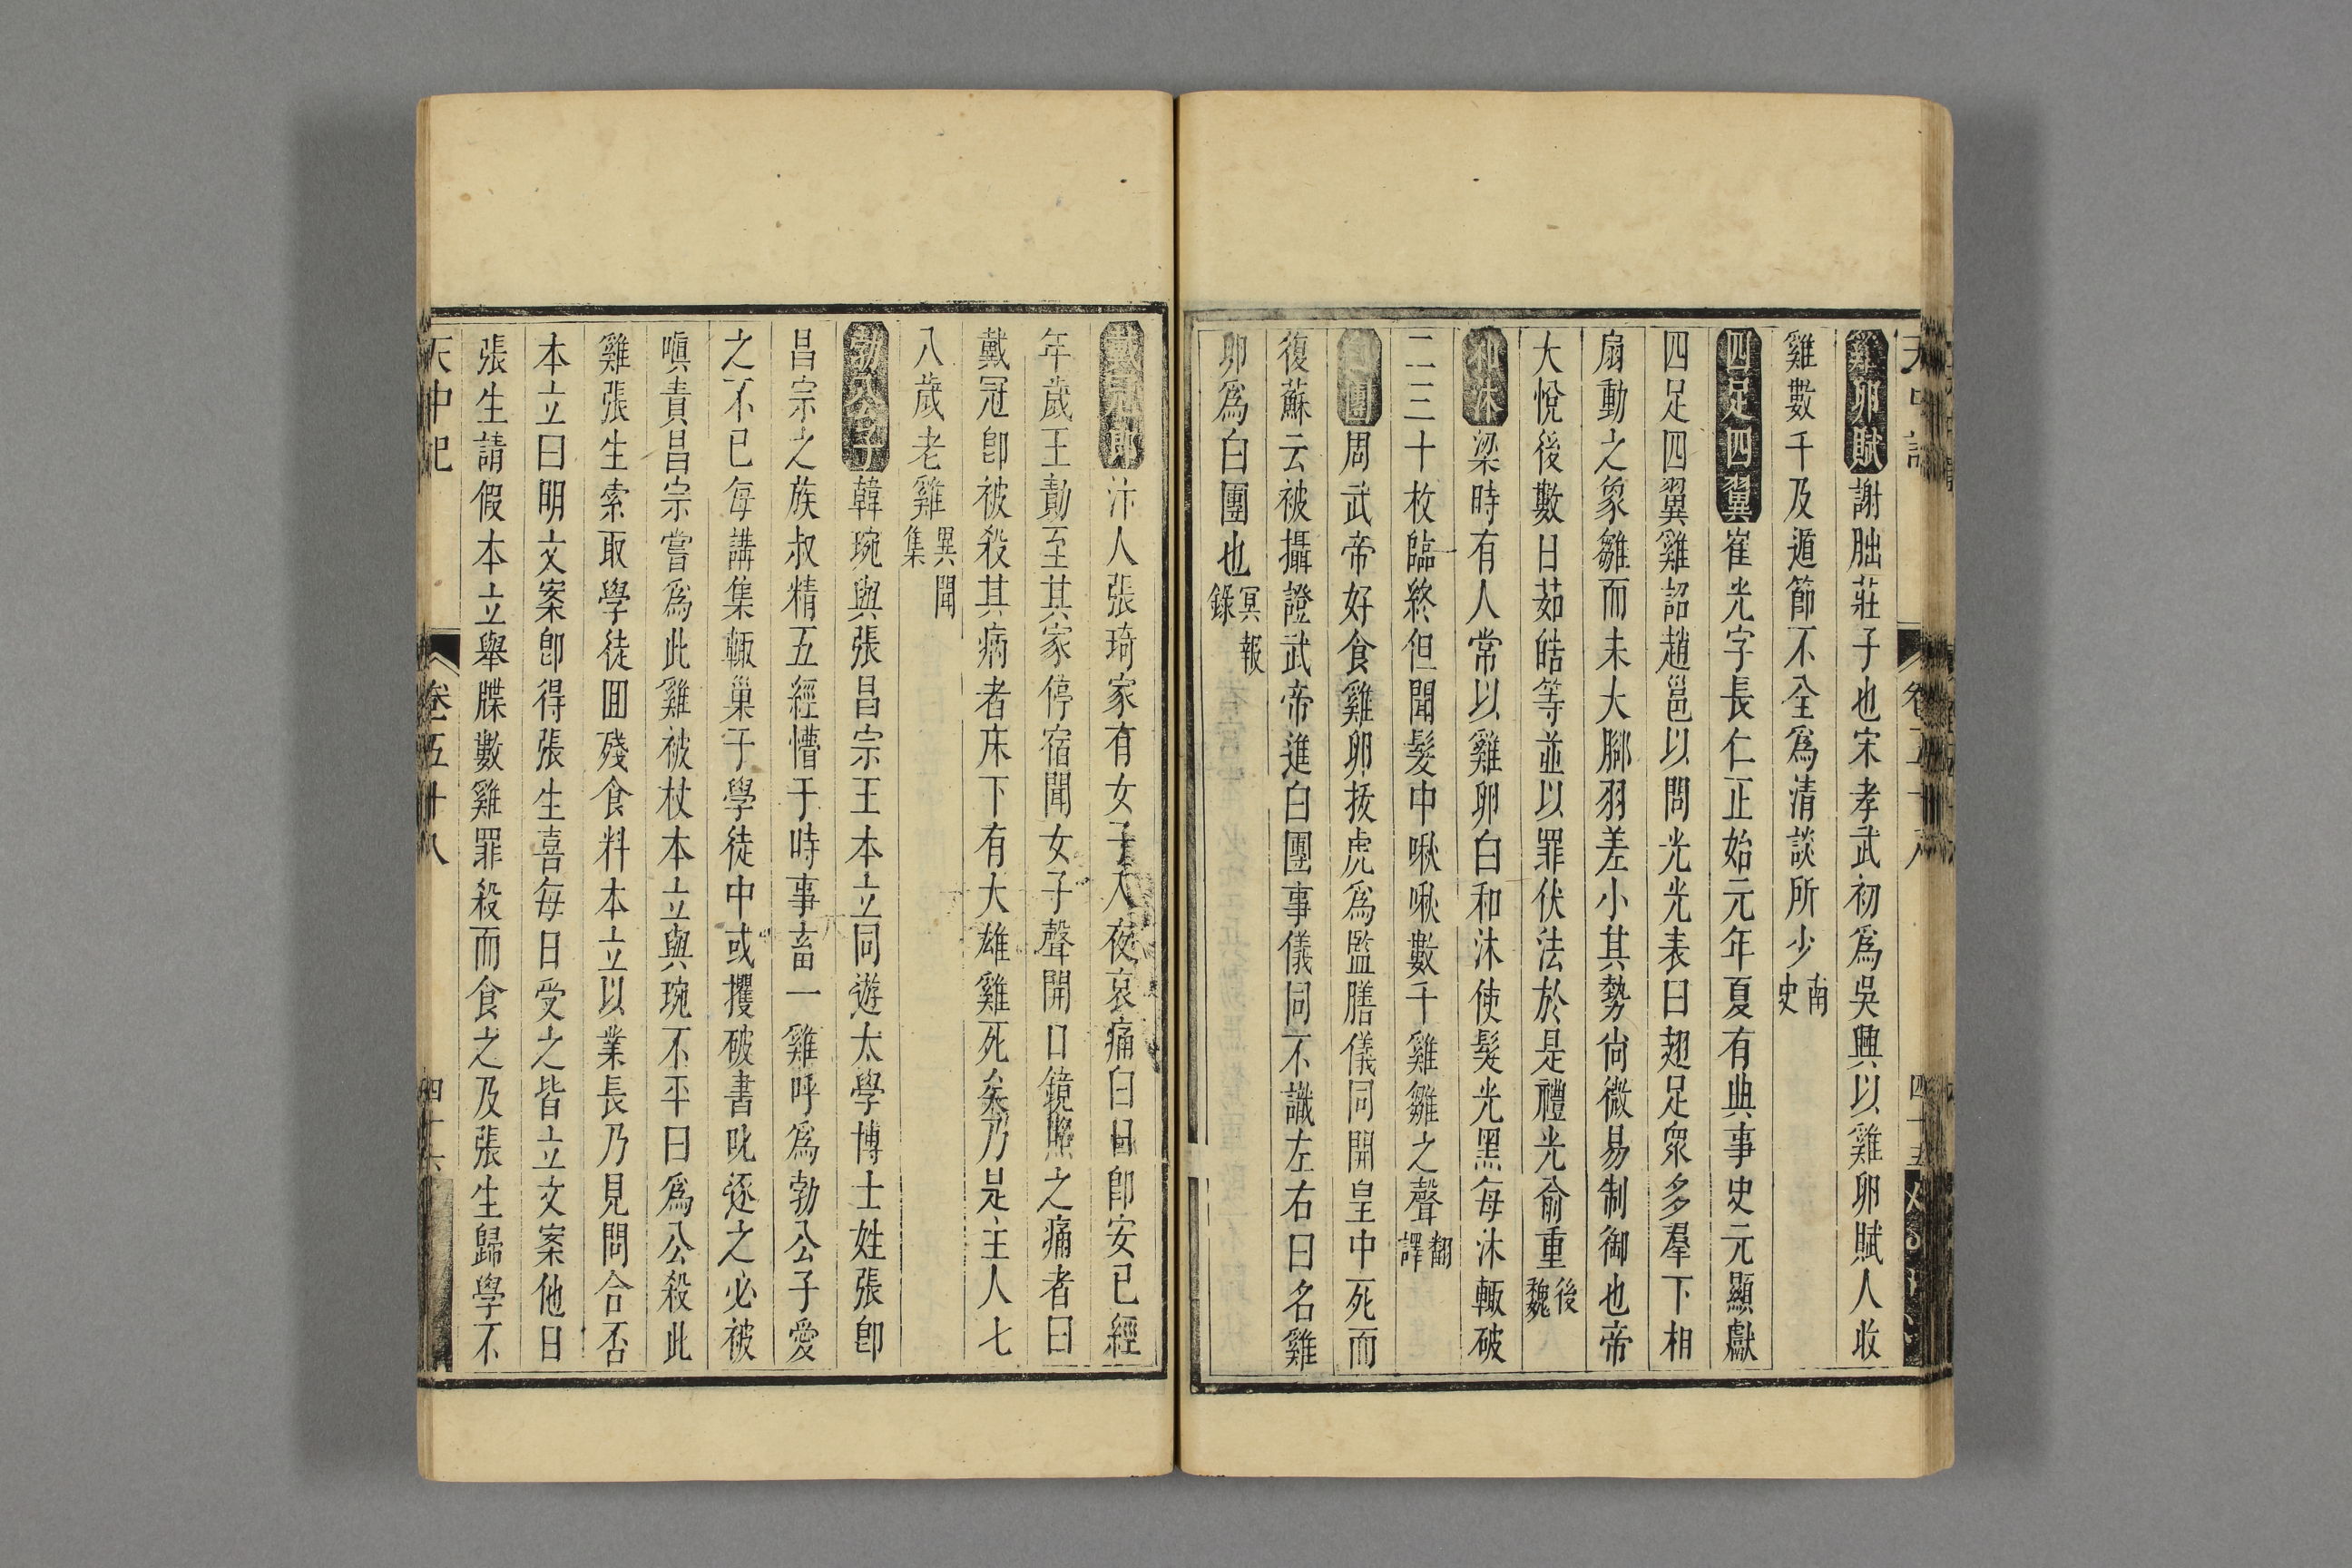 雞卵賦謝朏莊子也宋孝武初爲吳興以雞卵賦人收
雞數千及遁節不全爲清談所少南史
四足四翼崔光字長仁正始元年夏有典事史元顯獻
四足四翼雞詔趙邕以問光光表曰翅足衆多羣下相
扇動之象雛而未大脚羽差小其勢尙微易制御也帝
大悅後數日茹皓等並以罪伏法於是禮光俞重後魏
和沐梁時有人常以雞卵白和沐使髮光黑每沐輙破
二三十枚臨終但聞髮中啾啾數千雞雛之聲翻譯
團周武帝好食雞卵抜虎爲監膳儀同開皇中死而
復蘇云被攝證武帝進白團事儀同不識左右曰名雞
卵爲白團也冥報錄
戴冠郎汴人張琦家有女子入夜哀痛白日卽安已經
年歲王勣至其家停宿聞女子聲開口鏡照之痛者曰
戴冠卽被殺其病者床下有大雄雞死矣乃是主人七
八歲老雞異聞集
勃公子韓琬與張昌宗王本立同遊太學博士姓張卽
昌宗之族叔精五經懵于時事畜一雞呼爲勃公子愛
之不已每講集輙巢于學徒中或攫破書叱逐之必被
嗔責昌宗嘗爲此雞被杖本立與琬不平曰爲公殺此
雞張生索取學徒回殘食料本立以業長乃見問合否
本立曰明文案卽得張生喜每日受之皆立文案他日
張生請假本立舉牒數雞罪殺而食之及張生歸學不
天中記
卷五十八
四十六